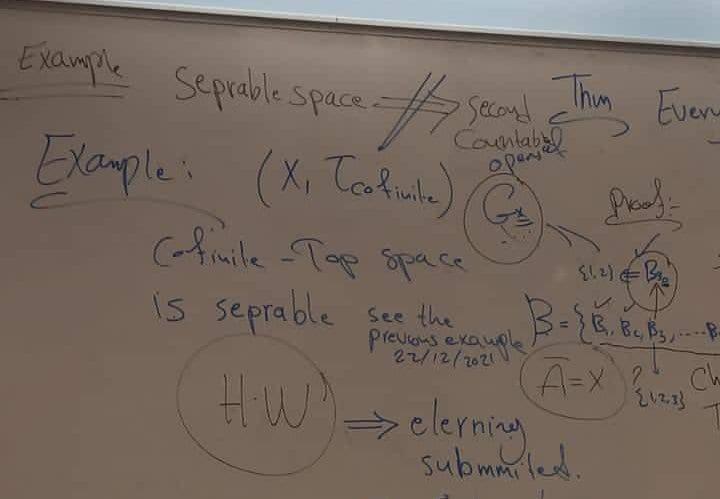 Example
Seprable space ⇏ Second Countable
Thm Every
Example: (X, τcofinite)
open set
Gx
Proof:-
Cofinite - Top space
{1,2} ∈ B32
is seprable see the previous example 22/12/2021
B = {B1, B2, B3, .... B
Ā = X
? {1,2,3}
Ch
T
H.W ⇒ elerning
submmited.